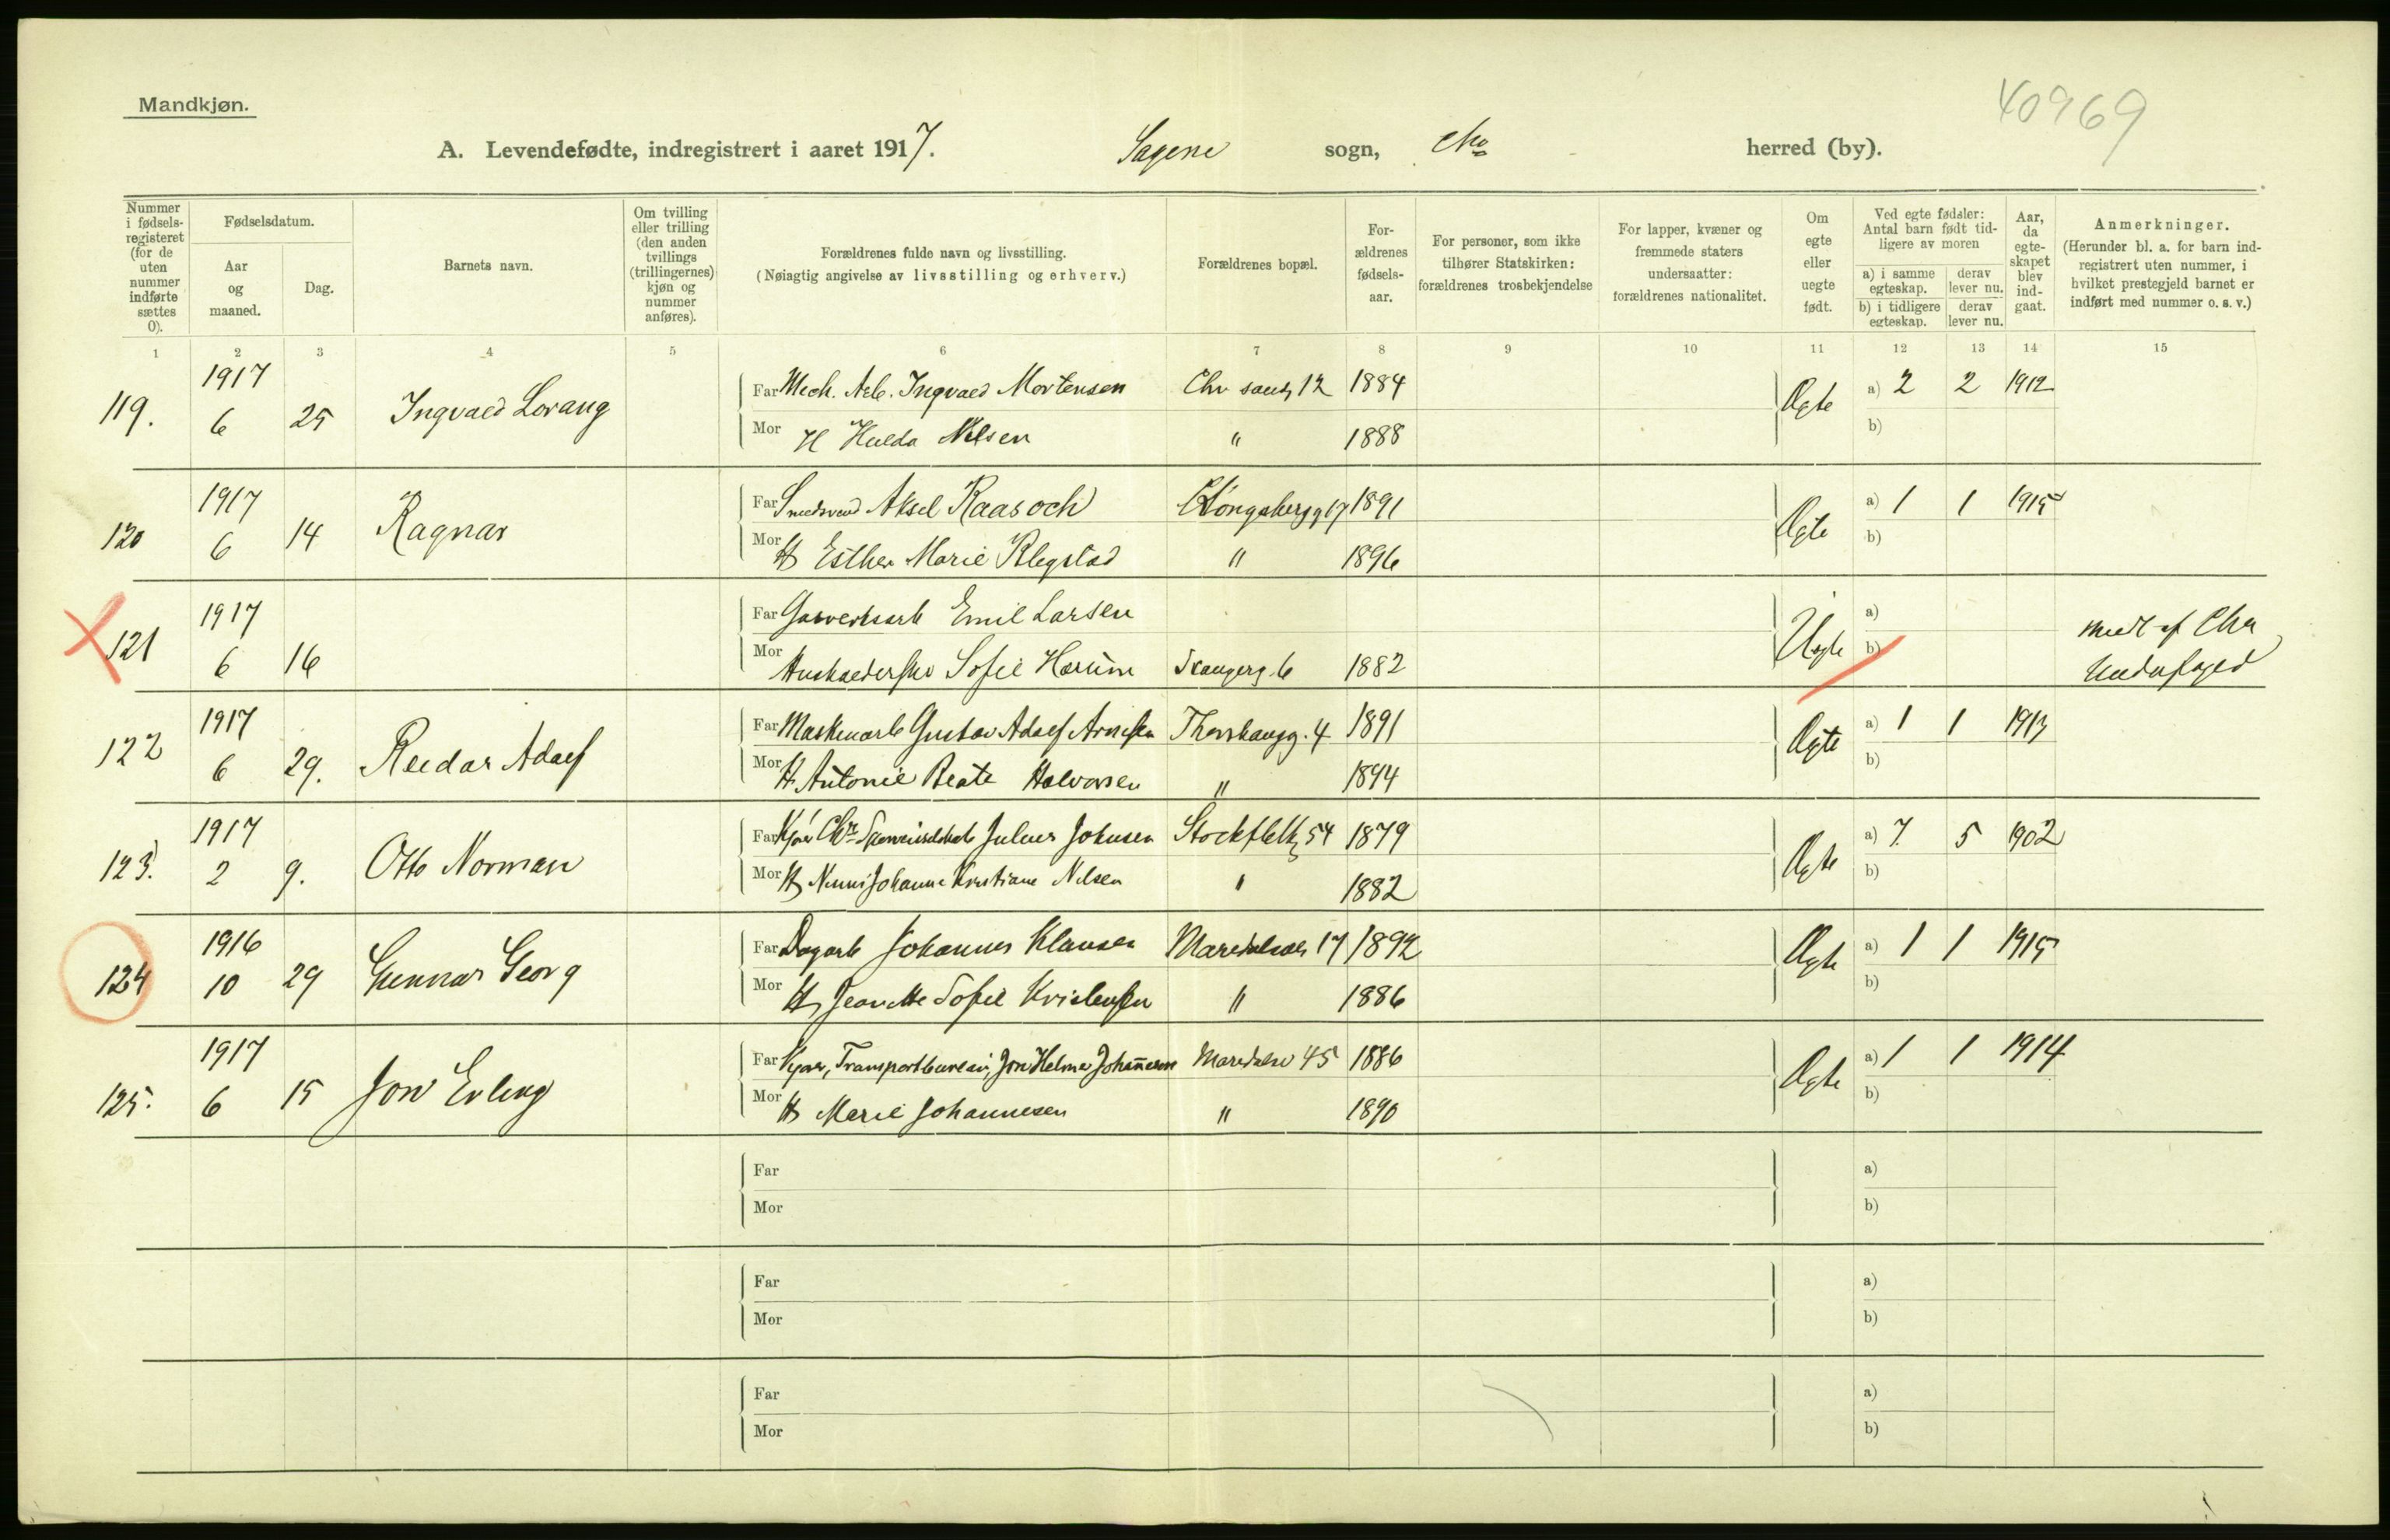 Mandkjøn.
40969
A. Levendefødte, indregistrert i aaret 1917. Sagene sogn, Chra herred (by).
Nummer i fødsels-registeret (for de uten nummer indførte sættes 0).
Fødselsdatum.
Aar og maaned.
Dag.
Barnets navn.
Om tvilling eller trilling (den anden tvillings (trillingernes) kjøn og nummer anføres).
Forældrenes fulde navn og livsstilling.
(Nøiagtig angivelse av livsstilling og erhverv.)
Forældrenes bopæl.
For-ældrenes fødsels-aar.
For personer, som ikke tilhører Statskirken: forældrenes trosbekjendelse
For lapper, kvæner og fremmede staters undersaatter: forældrenes nationalitet.
Om egte eller uegte født.
Ved egte fødsler: Antal barn født tid-ligere av moren
a) i samme egteskap. derav lever nu.
b) i tidligere egteskap. derav lever nu.
Aar, da egte-skapet blev ind-gaat.
Anmerkninger.
(Herunder bl. a. for barn ind-registrert uten nummer, i hvilket prestegjeld barnet er indført med nummer o. s. v.)
1 2 3 4 5 6 7 8 9 10 11 12 13 14 15
1917 Far Mech. Arb. Ingvald Mortensen Chr sandg 12 1884 a) 2 2 1912
119. 6 25 Ingvald Lorang Ægte
Mor H Hulda Nilsen " 1888 b)
1917 Far Smedsvend Aksel Raasoch Kongsbergg 17 1891 a) 1 1 1915
120 6 14 Ragnar Ægte
Mor H Esther Marie Klegstad " 1896 b)
1917 Far Gasverksarb Emil Larsen a)
121 6 16 Uegte
Mor Sofie Harum Stangerg. 6 1882 b)
1917 Far Maskinarb Gustav Adolf Arnesen Thorshaugg. 4 1891 a) 1 1 1913
122 6 29. Reidar Adolf Ægte
Mor H Antonie Beate Halvorsen " 1894 b)
1917 Far Kjører Julius Johnsen Stockflethg 54 1879 a) 7. 5 1902
123. 2 9. Otto Norman Ægte
Mor H Johanne Kristiane Nilsen " 1882 b)
1916 Far Dagarb Johannes Klausen Maridalsv 17 1892 a) 1 1 1915
124 10 29 Gunnar Georg Ægte
Mor H Jeanette Sofie Kristensen " 1886 b)
1917 Far Kjører, Transportbureau, Jon Helmer Johannesen Maridalsv 45 1886 a) 1 1 1914
125. 6 15 Jon Erling Ægte
Mor H Marie Johannesen " 1890 b)
Far a)
Mor b)
Far a)
Mor b)
Far a)
Mor b)